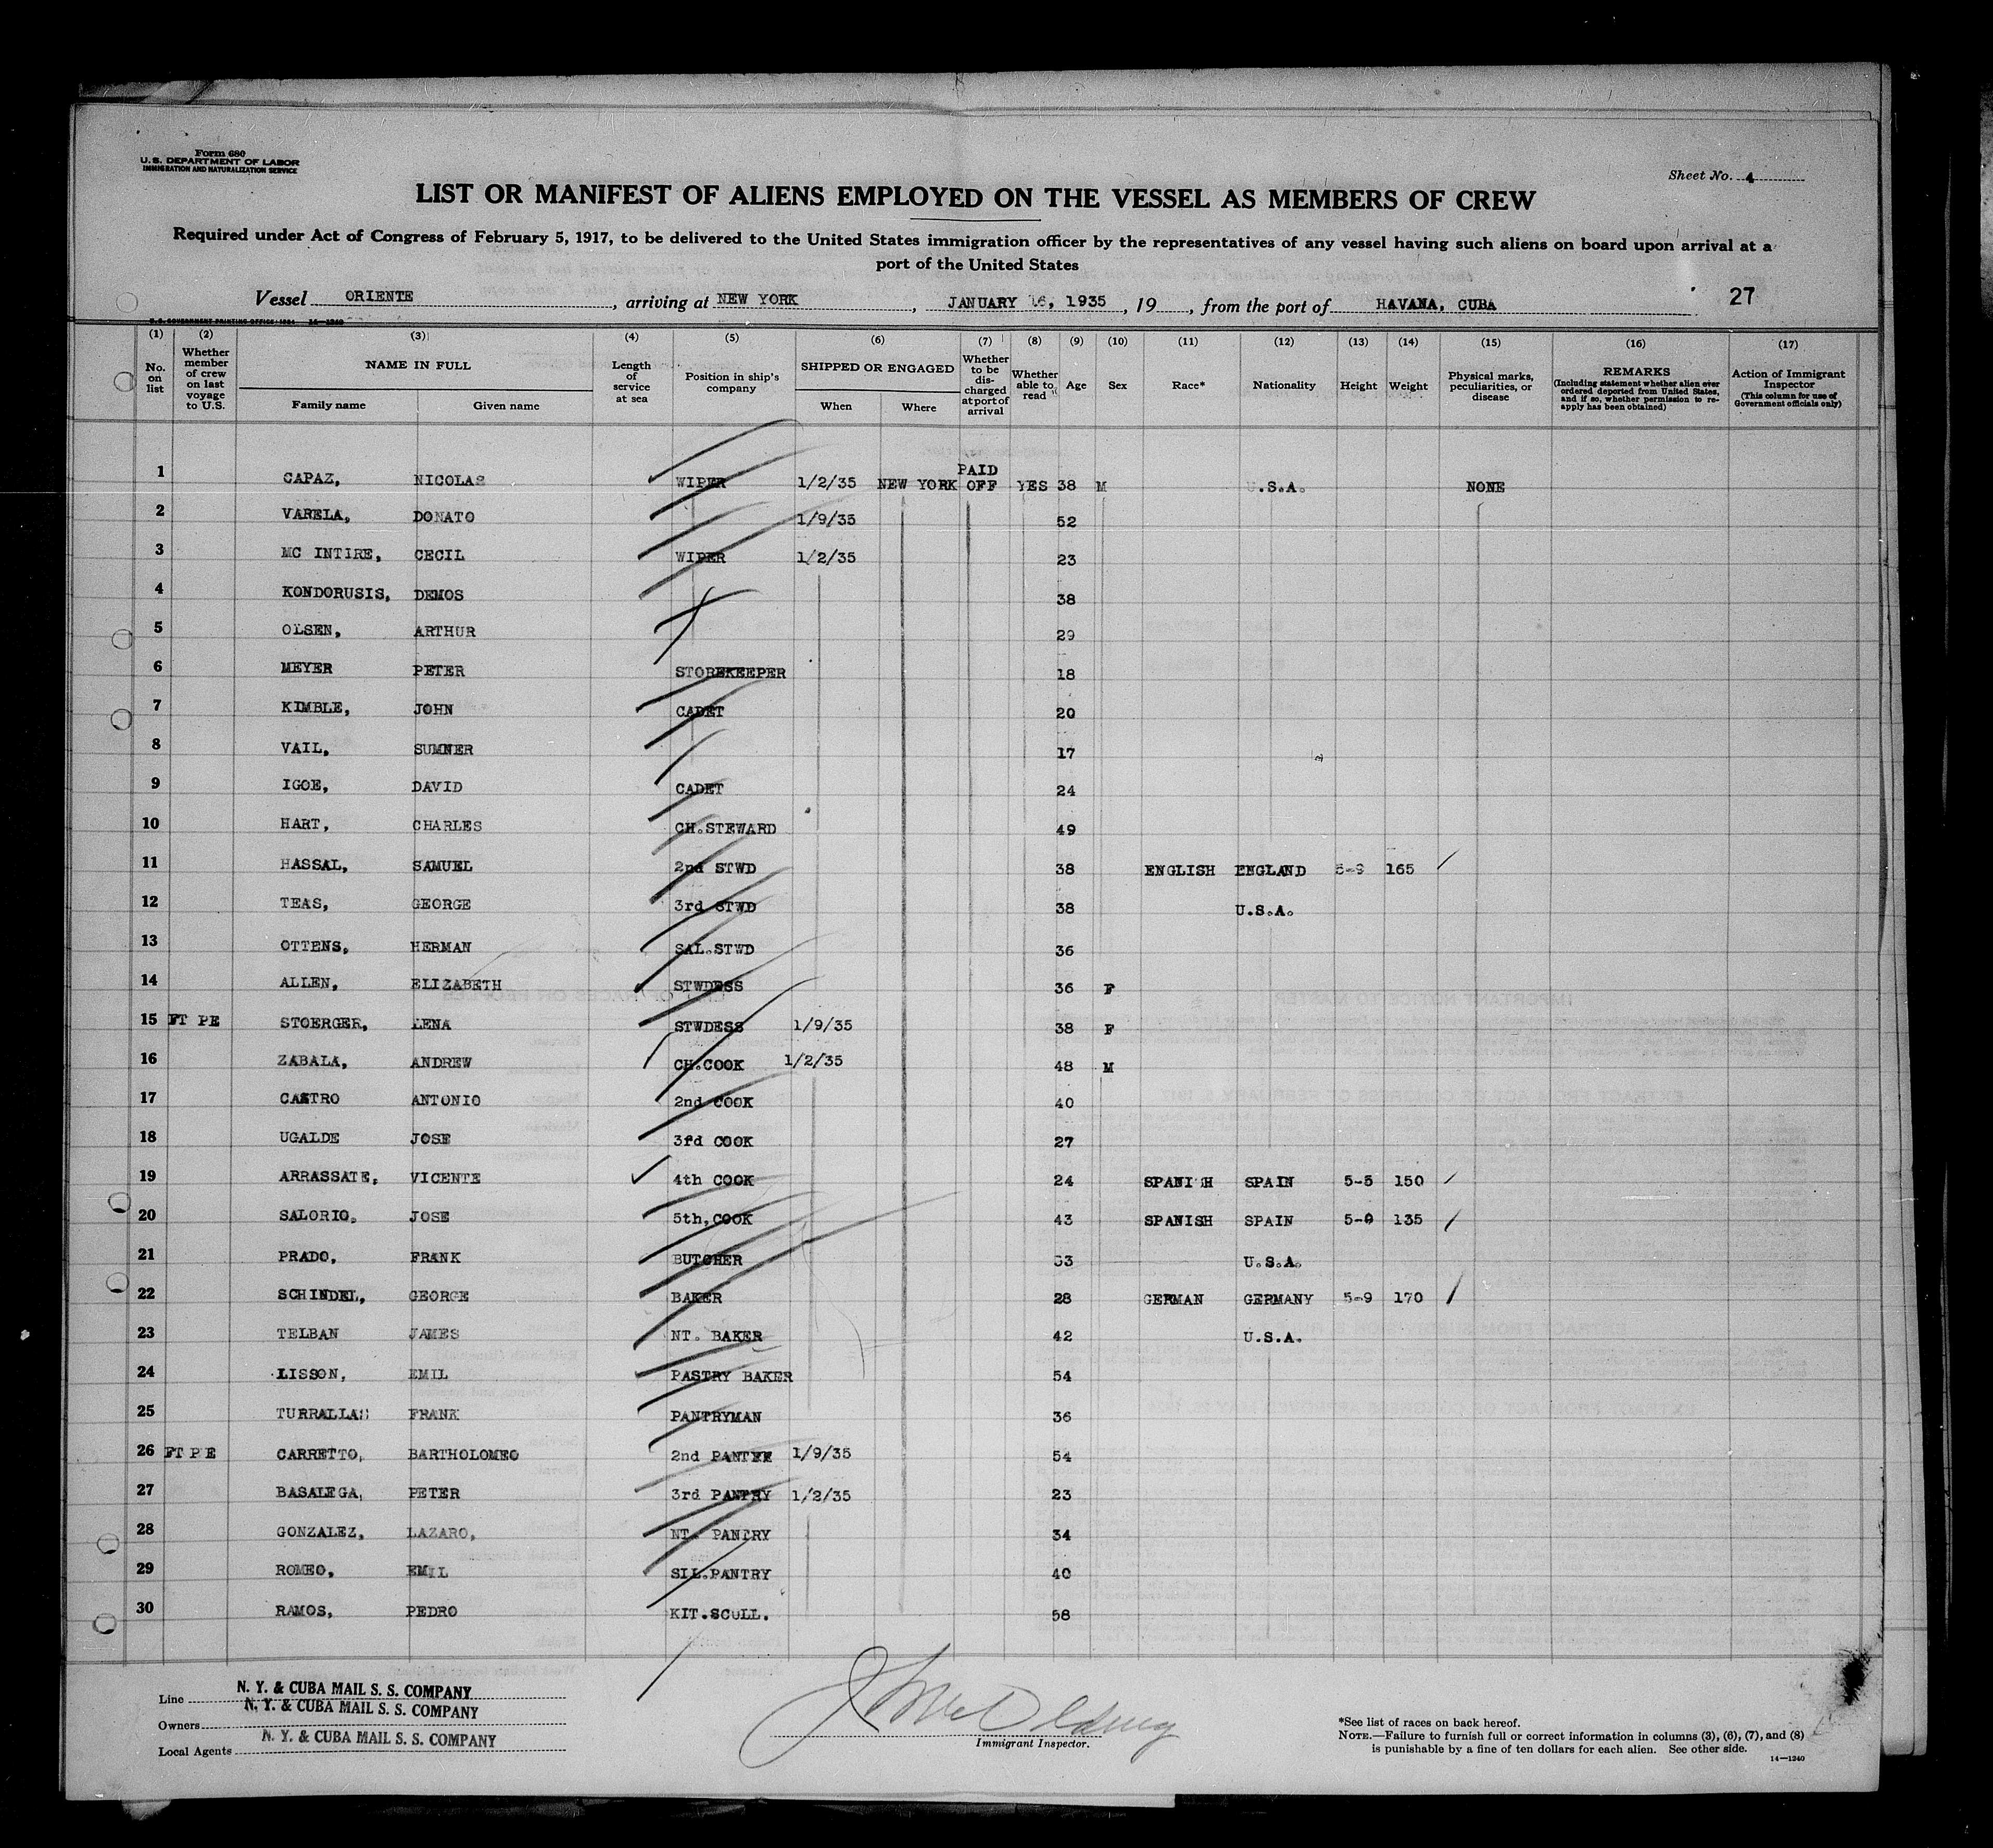 Form 680
U. S. DEPARTMENT OF LABOR
IMMIGRATION AND NATURALIZATION SERVICE
Sheet No. 4
LIST OR MANIFEST OF ALIENS EMPLOYED ON THE VESSEL AS MEMBERS OF CREW
Required under Act of Congress of February 5, 1917, to be delivered to the United States immigration officer by the representatives of any vessel having such aliens on board upon arrival at a
port of the United States
Vessel ORIENTE, arriving at NEW YORK, JANUARY 16, 1935, 19, from the port of HAVANA, CUBA 27
U. S. GOVERNMENT PRINTING OFFICE: 1934 14—1240
(1) (2) (3) (4) (5) (6) (7) (8) (9) (10) (11) (12) (13) (14) (15) (16) (17)
No. on list
Whether member of crew on last voyage to U.S.
NAME IN FULL
Family name Given name
Length of service at sea
Position in ship's company
SHIPPED OR ENGAGED
When Where
Whether to be discharged at port of arrival
Whether able to read
Age
Sex
Race*
Nationality
Height
Weight
Physical marks, peculiarities, or disease
REMARKS
(Including statement whether alien ever ordered deported from United States, and if so, whether permission to reapply has been obtained)
Action of Immigrant Inspector
(This column for use of Government officials only)
1 CAPAZ, NICOLAS WIPER 1/2/35 NEW YORK PAID OFF YES 38 M U.S.A. NONE
2 VARELA, DONATO 1/9/35 52
3 MC INTIRE, CECIL WIPER 1/2/35 23
4 KONDORUSIS, DEMOS 38
5 OLSEN, ARTHUR 29
6 MEYER PETER STOREKEEPER 18
7 KIMBLE, JOHN CADET 20
8 VAIL, SUMNER 17
9 IGOE, DAVID CADET 24
10 HART, CHARLES CH.STEWARD 49
11 HASSAL, SAMUEL 2nd STWD 38 ENGLISH ENGLAND 5-9 165
12 TEAS, GEORGE 3rd STWD 38 U.S.A.
13 OTTENS, HERMAN SAL.STWD 36
14 ALLEN, ELIZABETH STWDESS 36 F
15 FT PE STOERGER, LENA STWDESS 1/9/35 38 F
16 ZABALA, ANDREW CH.COOK 1/2/35 48 M
17 CASTRO ANTONIO 2nd COOK 40
18 UGALDE JOSE 3rd COOK 27
19 ARRASSATE, VICENTE 4th COOK 24 SPANISH SPAIN 5-5 150
20 SALORIO, JOSE 5th, COOK 43 SPANISH SPAIN 135
21 PRADO, FRANK BUTCHER U.S.A.
22 SCHINDEL, GEORGE BAKER 28 GERMAN GERMANY 5-9 170
23 TELBAN JAMES NT. BAKER 42 U.S.A.
24 LISSON, EMIL PASTRY BAKER 54
25 TURRALLAS FRANK PANTRYMAN 36
26 FT PE CARRETTO, BARTHOLOMEO 2nd 1/9/35 54
27 BASALEGA, PETER 3rd PANTRY 1/2/35 23
28 GONZALEZ, LAZARO, NT. PANTRY 34
29 ROMEO, EMIL SIL.PANTRY 40
30 RAMOS, PEDRO KIT.SCULL. 58
Line N. Y. & CUBA MAIL S. S. COMPANY
Owners N. Y. & CUBA MAIL S. S. COMPANY
Local Agents N. Y. & CUBA MAIL S. S. COMPANY
Immigrant Inspector.
*See list of races on back hereof.
NOTE.—Failure to furnish full or correct information in columns (3), (6), (7), and (8)
is punishable by a fine of ten dollars for each alien. See other side.
14—1240